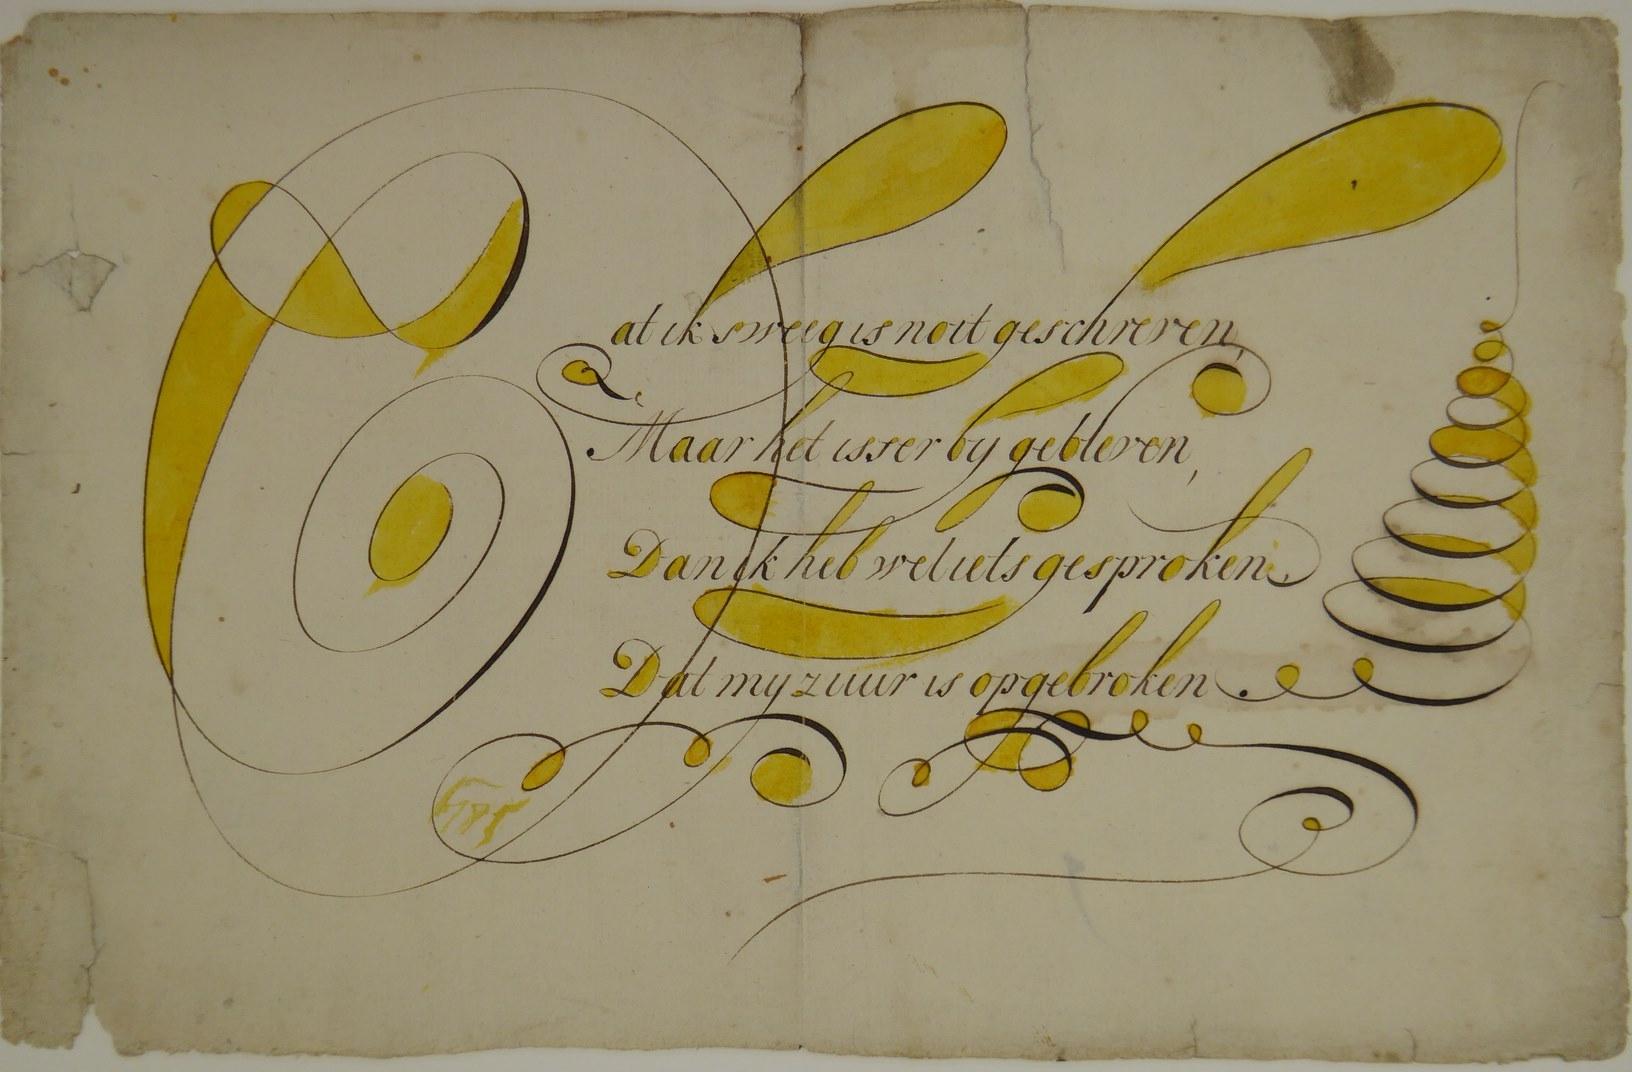 Dat ik sweeg is noit geschreven,
Maar het isser by gebleven,
Dan ik heb wel iets gesproken,
Dat my zuur is opgebroken.
1785